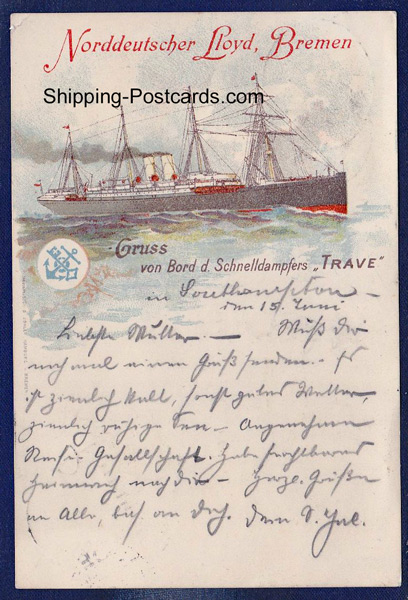 Norddeutscher Lloyd, Bremen
Shipping-Postcards.com
Gruss
von Bord d. Schnelldampfers „TRAVE"
in Southampton –
den 15. Juni
Liebste Mutter. – Muß dir
noch mal einen Gruß senden. – Es
ist ziemlich kalt, sonst gutes Wetter,
ziemlich ruhige See – Angenehme
Reise Gesellschaft. Habe furchtbares
Heimweh nach dir – Herzl. Grüße
an Alle, bes an dich. dein